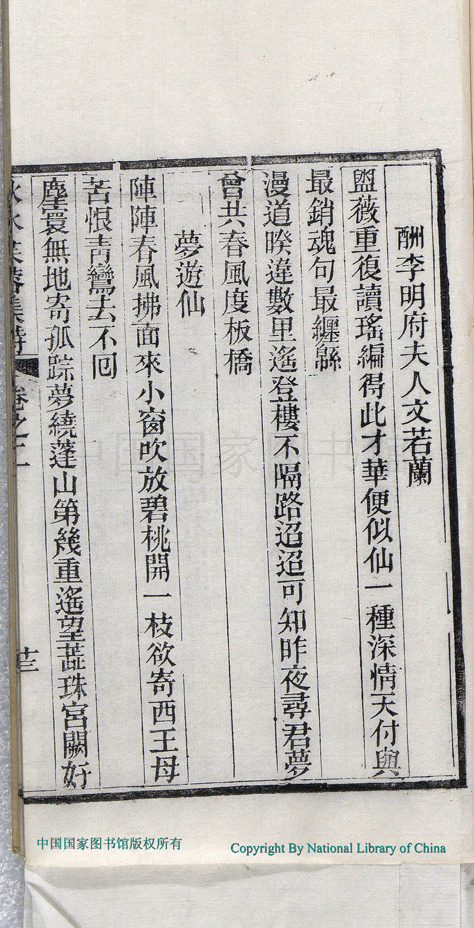 酬李明府夫人文若蘭
盥薇重復讀瑤編得此才華便似仙一種深情天付與
最銷魂句最纏緜
漫道暌違數里遙登樓不隔路迢迢可知昨夜尋君夢
曾共春風度板橋
夢遊仙
陣陣春風拂面來小窗吹放碧桃開一枝欲寄西王母
苦恨青鸞去不囘
塵寰無地寄孤踪夢繞蓬山第幾重遙望蕋珠宮闕好
集 卷之二 廿三
中国国家图书馆版权所有
Copyright By National Library of China